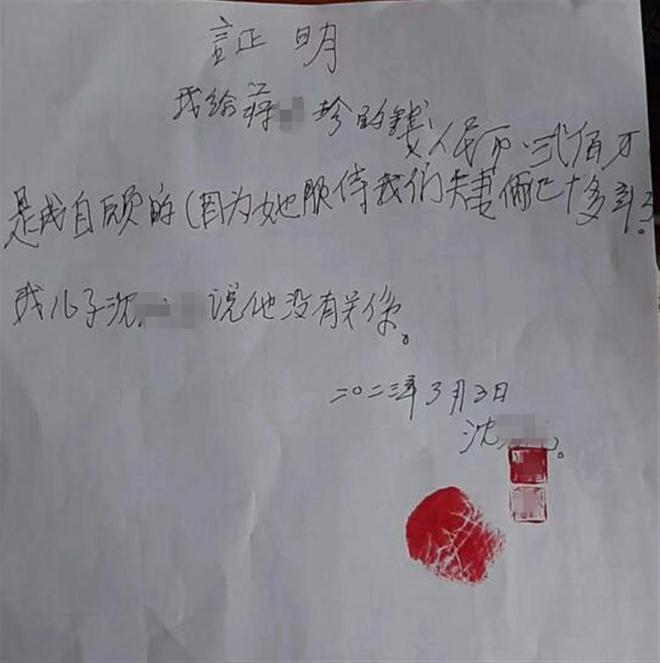 証明
我给蒋 珍的錢人民币.弐佰万
是我自颐的(因为她服侍我们夫妻俩已十多年了.
我儿子沈 说他没有关係。
二〇二三年3月3日
沈 。